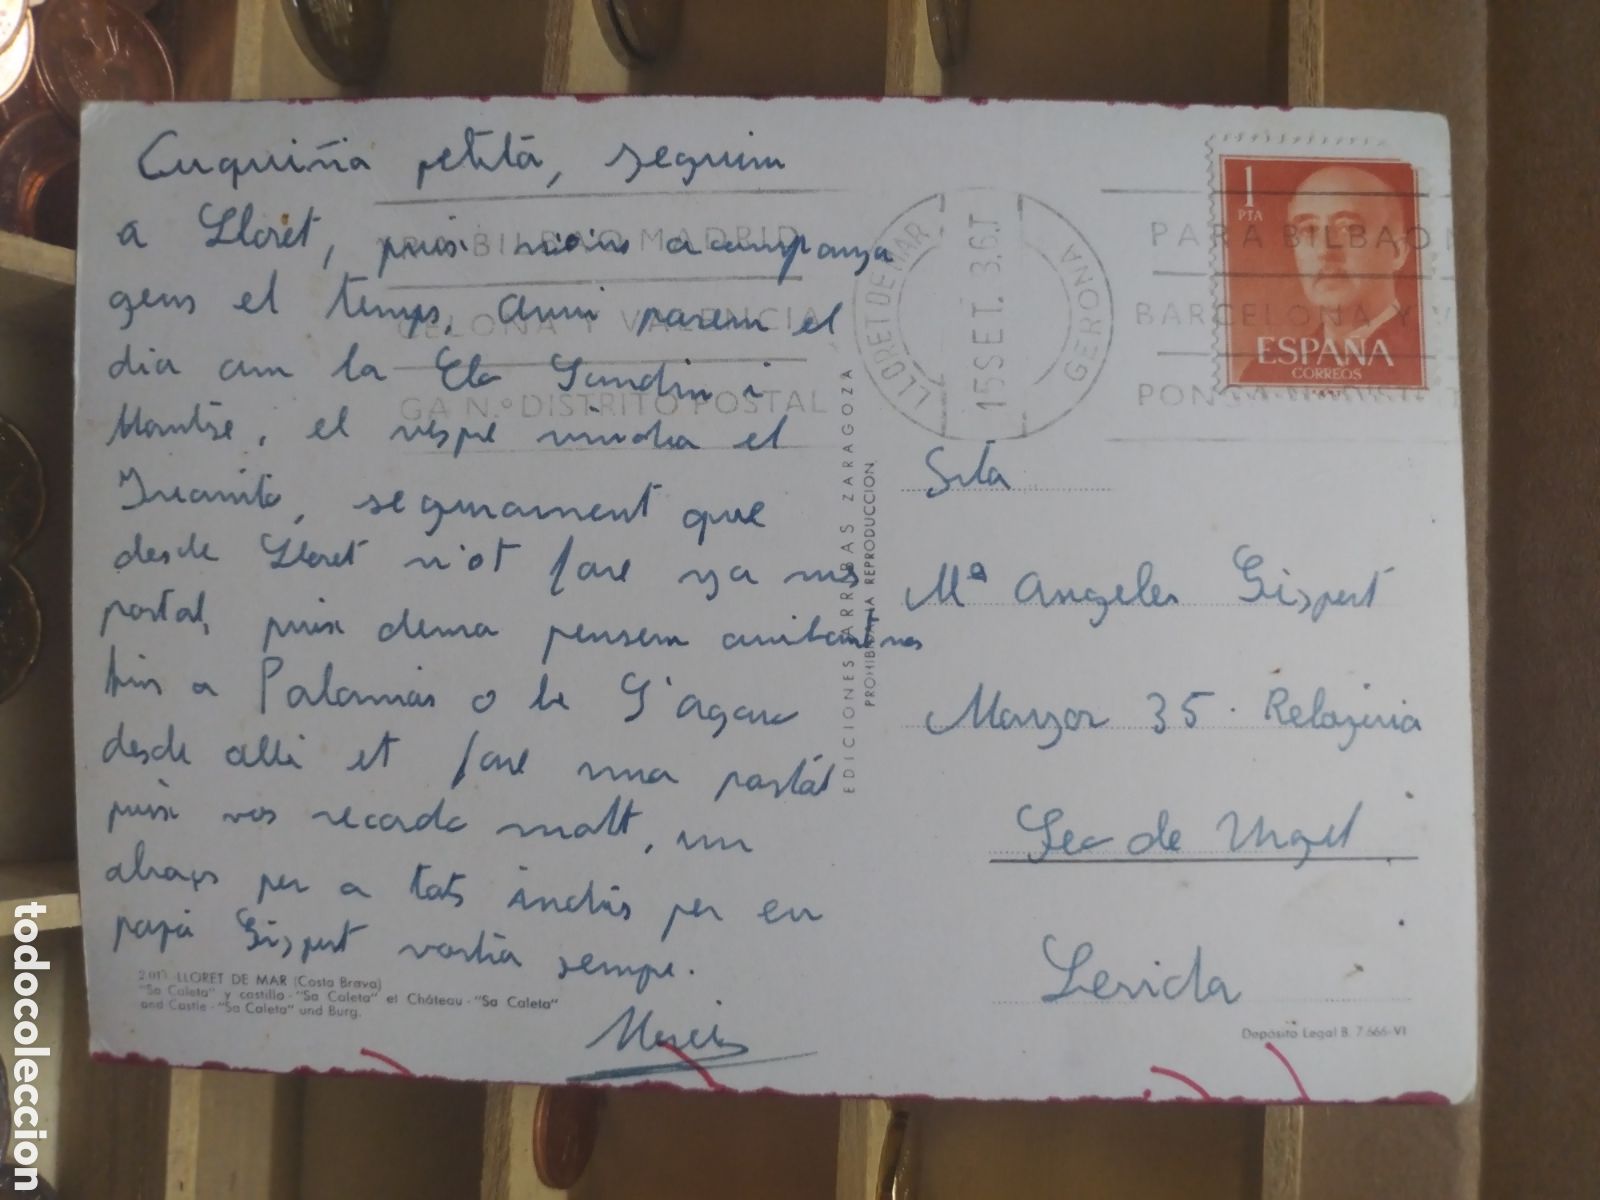 Cuquiña petita, seguim
a Lloret, puix acompanya
gens el temps. Avui passem el
dia am la i
Montse, el vespre vindra el
Juanito, segurament que
desde Lloret n'ot fare ya mes
postal, puix dema pensem anirnos
fins a Palamós o be S'agaro
desde alli et fare una postal
puix vos recordo molt, un
abraços per a tots inclús per en
papá Gispert vostra sempre.
Mercè
2.017 LLORET DE MAR (Costa Brava)
"Sa Caleta" y castillo - "Sa Caleta" et Château - "Sa Caleta"
and Castle - "Sa Caleta" und Burg.
EDICIONES SARRIBAS ZARAGOZA
PROHIBIDA LA REPRODUCCION
BILBAO MADRID
CELONA Y VALENCIA
GA N.º DISTRITO POSTAL
LLORET DE MAR
15 SET. 3.6.T
GERONA
PARA BILBAO M
BARCELONA Y V
PONGA
1
PTA
ESPAÑA
CORREOS
Srta
Mª Angeles Gispert
Manzor 35 · Relojeria
Seo de Urgel
Lerida
Depósito Legal B. 7.666-VI
todocoleccion